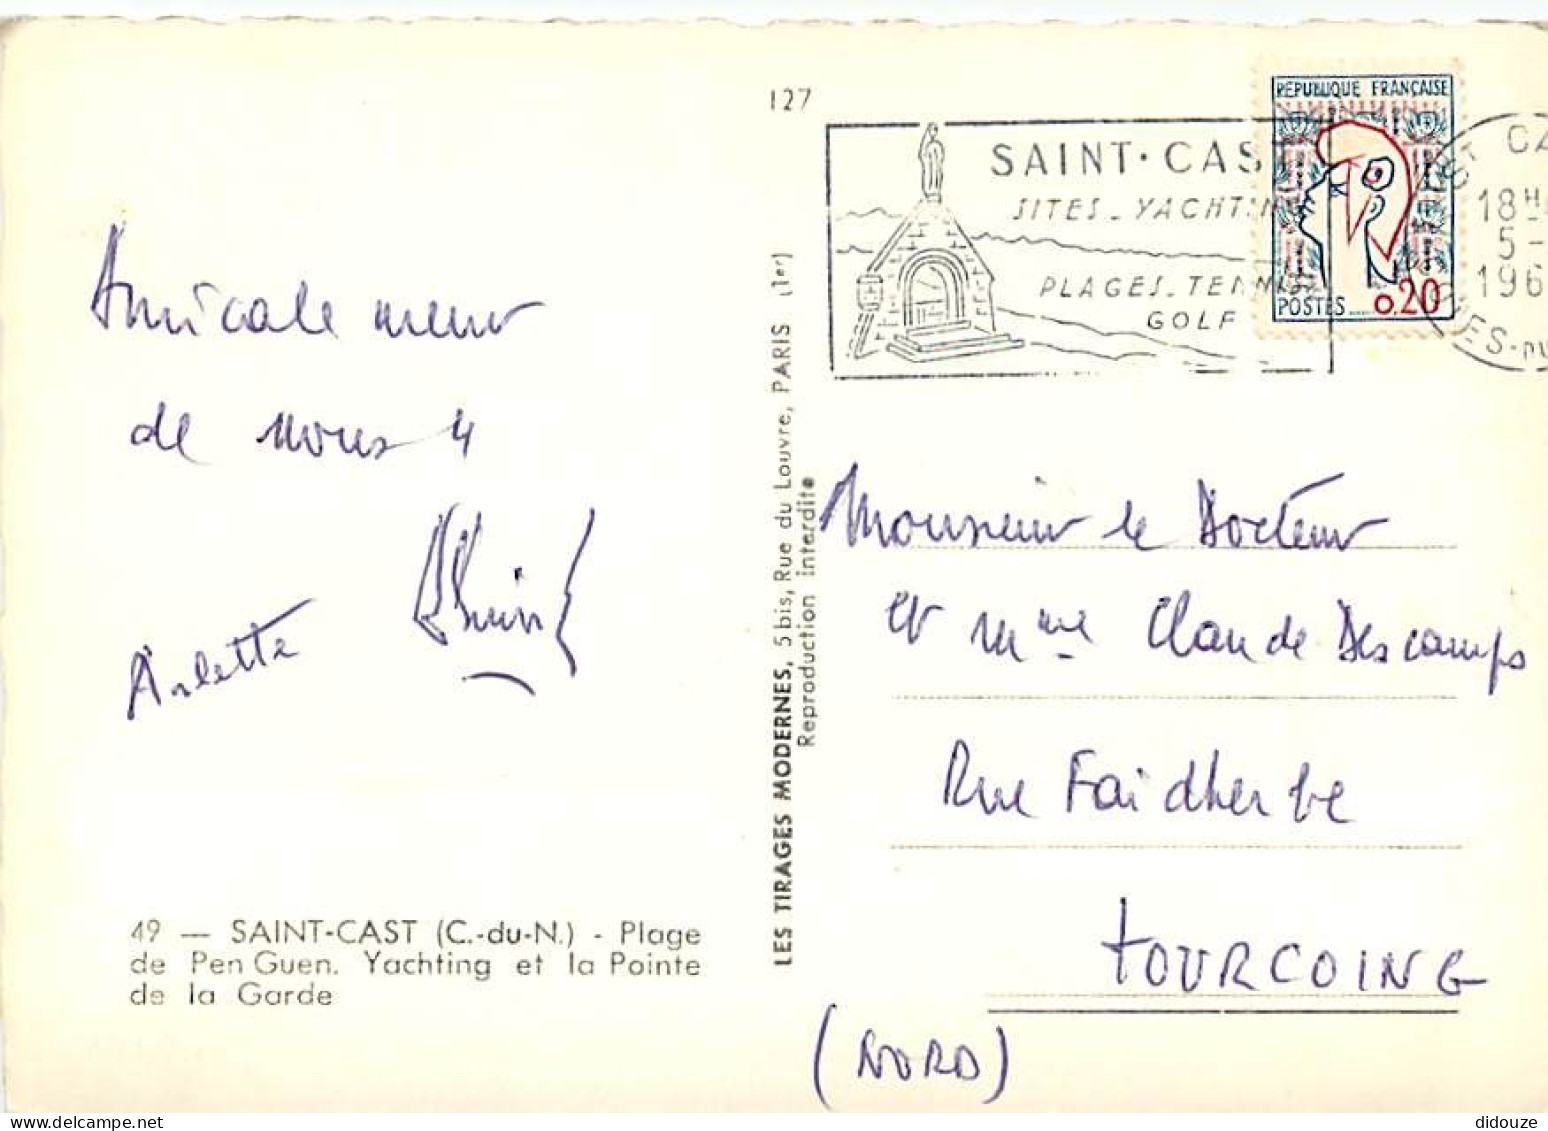 127
SAINT-CAS
SITES _ YACHTIN
PLAGES _ TENNIS
GOLF
REPUBLIQUE FRANÇAISE
POSTES
0.20
ST CA
18H
5-
196
Amicalement
de nous 4
Arlette
Monsieur le Docteur
et Mme Claude Descamps
Rue Faidherbe
TOURCOING
(NORD)
49 — SAINT-CAST (C.-du-N.) - Plage
de Pen Guen. Yachting et la Pointe
de la Garde
LES TIRAGES MODERNES, 5 bis, Rue du Louvre, PARIS (1er)
Reproduction interdite
didouze